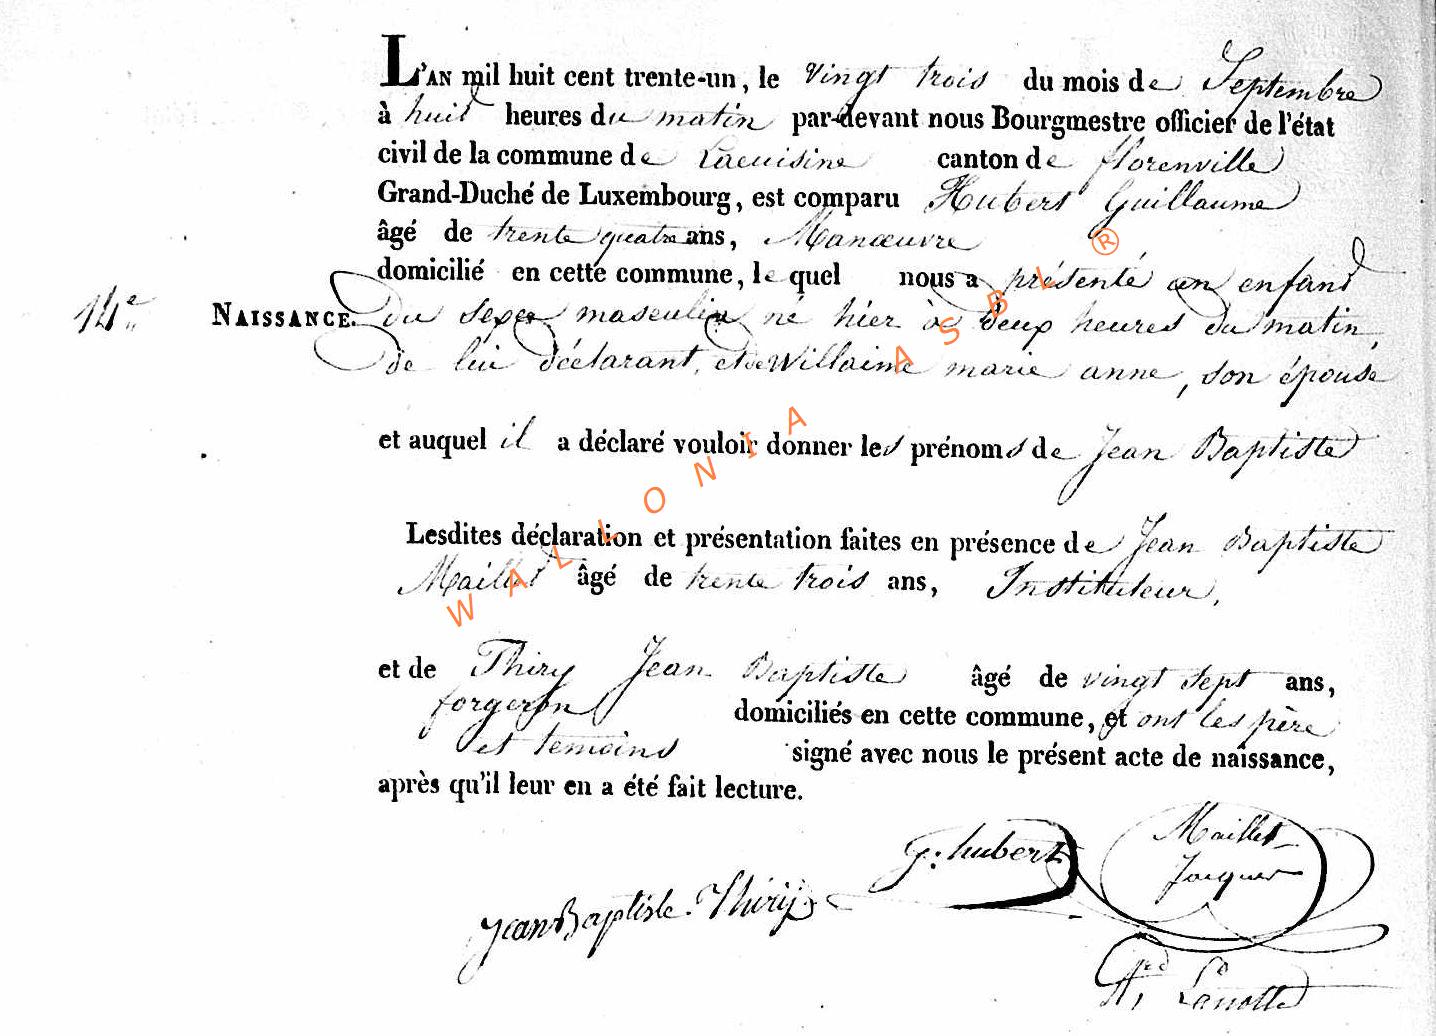 L'AN mil huit cent trente-un, le vingt trois du mois de Septembre
à huit heures du matin par-devant nous Bourgmestre officier de l'état
civil de la commune de Lacuisine canton de florenville
Grand-Duché de Luxembourg, est comparu Hubert Guillaume
âgé de trente quatre ans, Manœuvre
domicilié en cette commune, le quel nous a présenté un enfant
14e NAISSANCE. du sexe masculin né hier à deux heures du matin,
de lui déclarant, et de Willaime marie anne, son épouse
et auquel il a déclaré vouloir donner les prénoms de Jean Baptiste
Lesdites déclaration et présentation faites en présence de Jean Baptiste
Maillet âgé de trente trois ans, Instituteur,
et de Thiry Jean Baptiste âgé de vingt sept ans,
forgeron domiciliés en cette commune, et ont les père
et temoins signé avec nous le présent acte de naissance,
après qu'il leur en a été fait lecture.
G: hubert Maillet
Jean Baptiste Thiry
Lanotte
WALLONIA ASBL ®